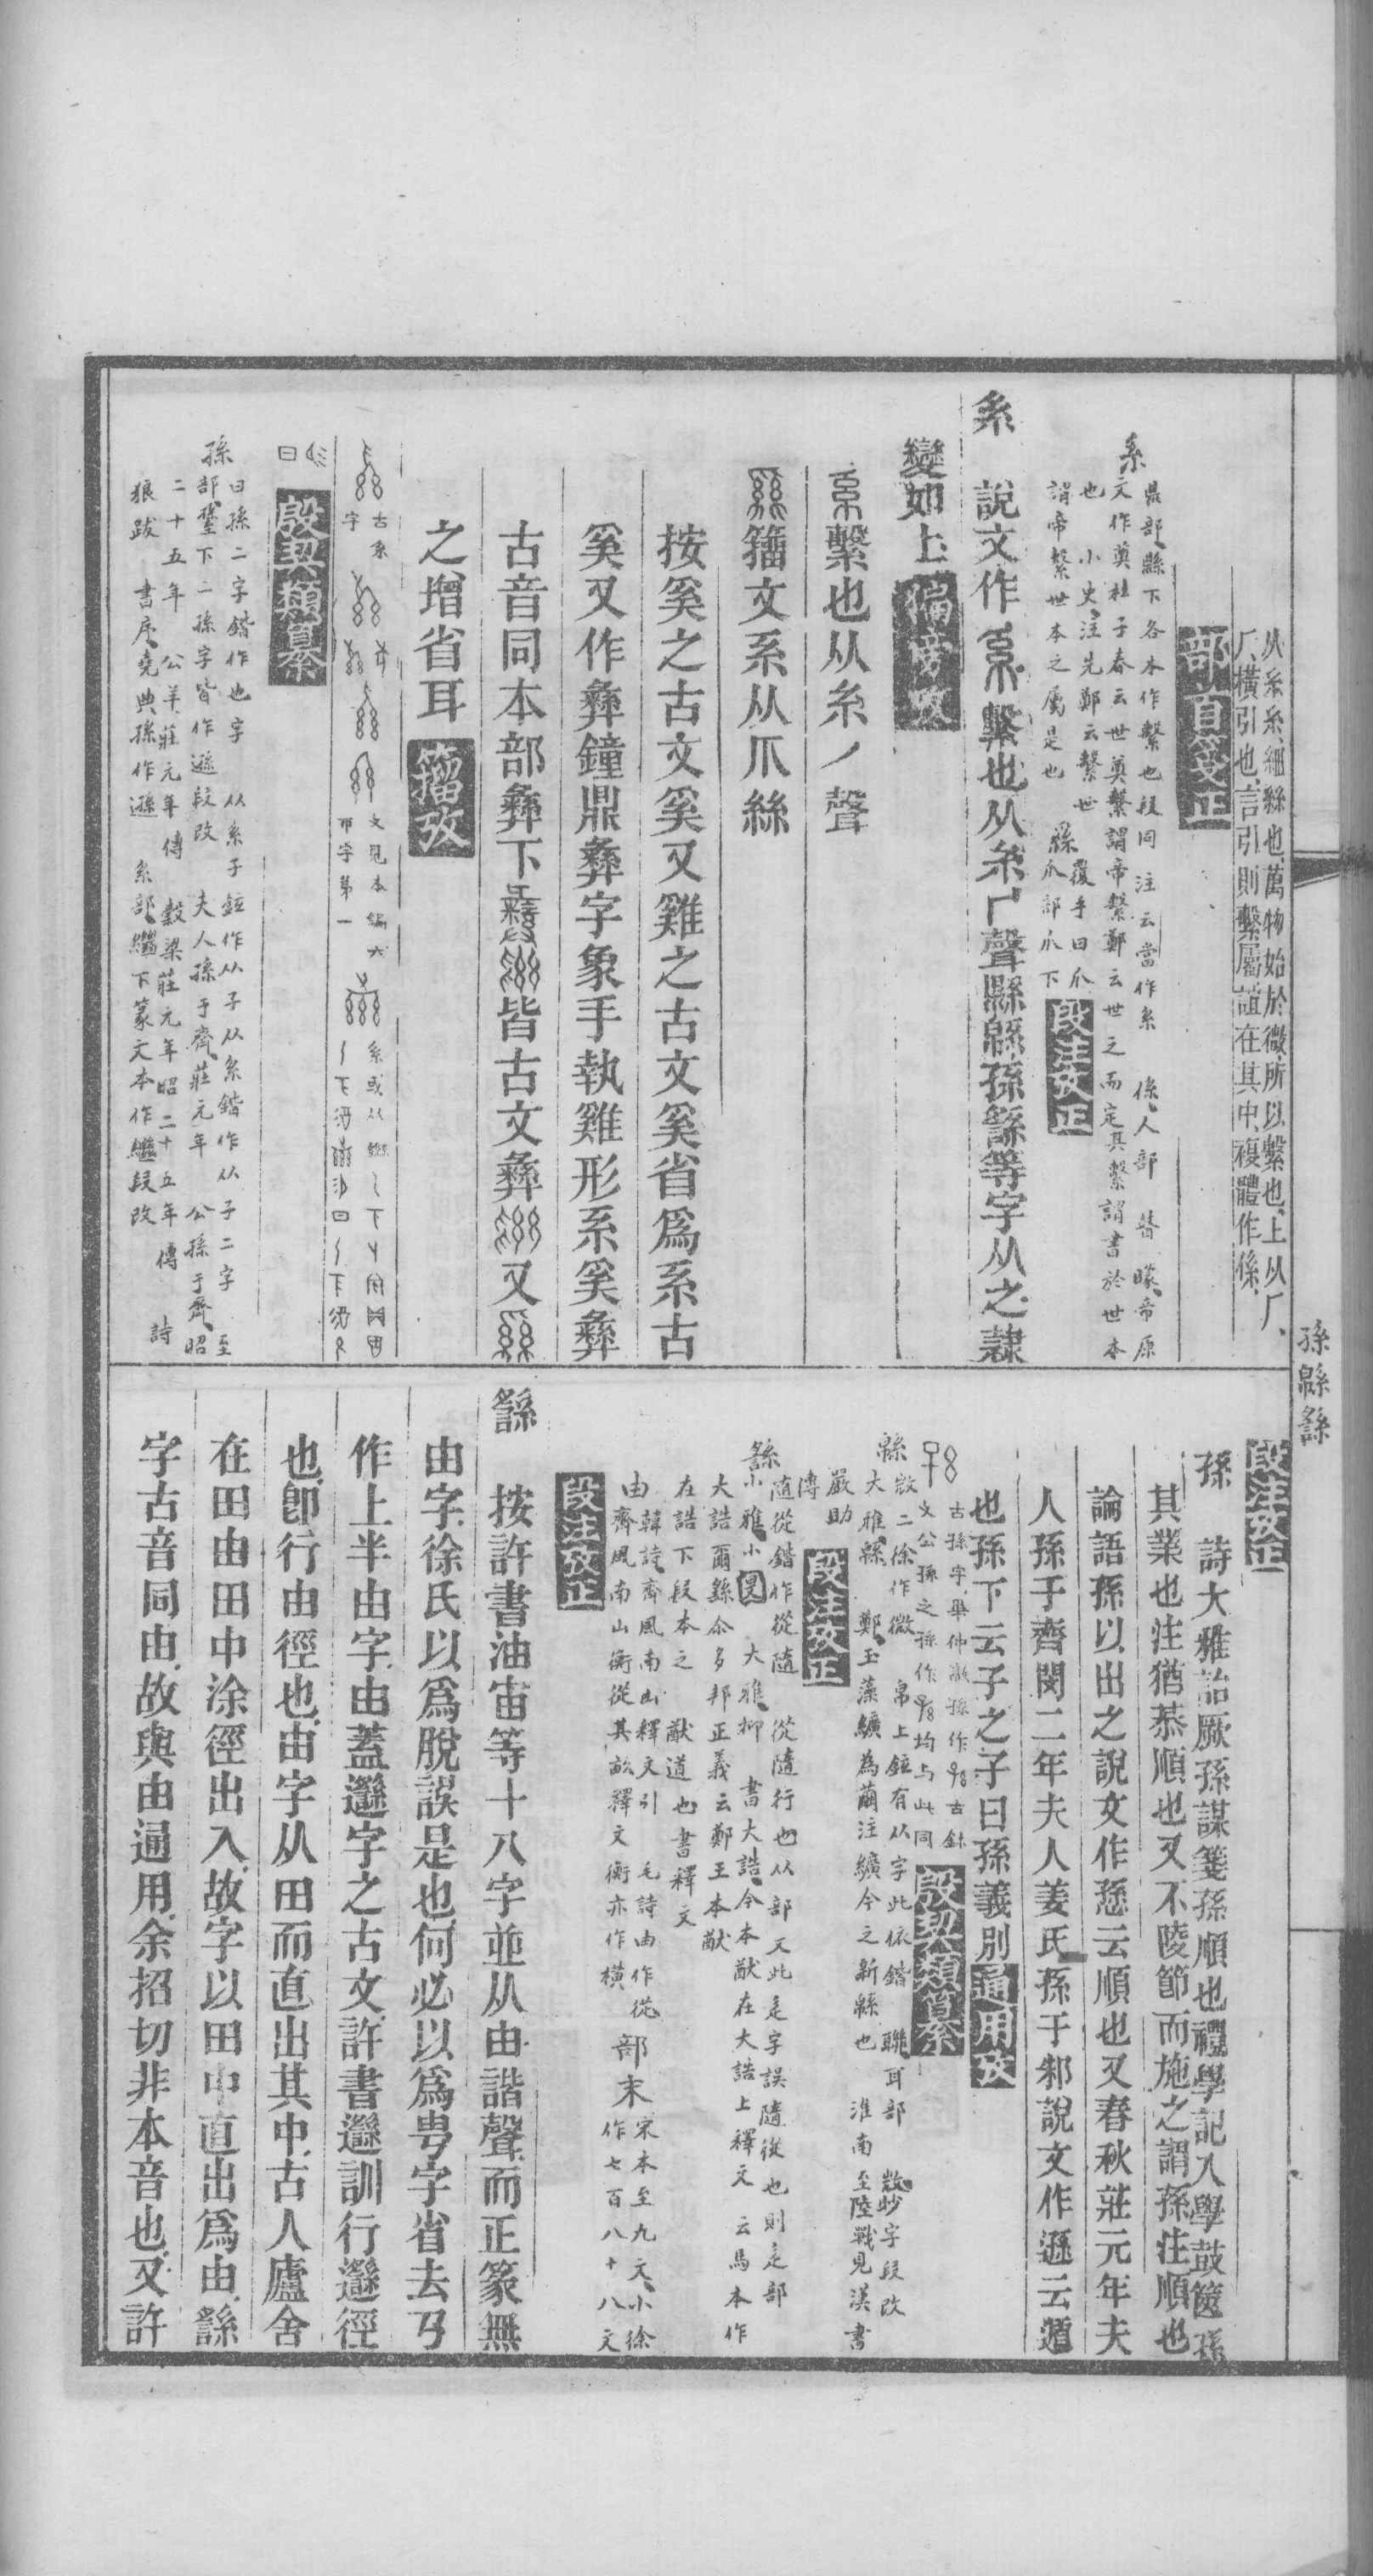 从系糸、細絲也、萬物始於微所以繫也、上从𠂆、
𠂆、橫引也、言引則繫屬誼在其中、複體作係、
部首受正
系 県部、縣下各本作繫也段同注云當作系 係、人部 瞽矇、帝
文作奠杜子春云世奠繫謂帝繫鄭云世之而定其繫謂書於世本
也 小史、注先鄭云繫世 覆手曰爪
謂帝繫世本之屬是也 爪部爪下
段注攷正
系 說文作系繫也从糸厂聲縣緜孫繇等字从之隸
變如上 偏旁攷
系繫也从糸丿聲
籀文系从爪絲
按奚之古文奚又雞之古文奚省爲系古
奚又作彝鐘鼎彝字象手執雞形系奚彝
古音同本部彝下皆古文彝又
之增省耳 籀攷
古系字
文見本編六
第一
系或从
殷契類纂
孫 曰孫二字鍇作也字 从系子鉉作从子从系鍇作从子二字 至
部、臸下二孫字皆作遜段改 夫人孫于齊、莊元年 公孫于齊、昭
二十五年 公羊莊元年傳 穀梁莊元年昭二十五年傳 詩
狼跋 書序、堯典孫作遜 糸部、繼下篆文本作繼段改
孫緜繇
段注攷正
孫 詩大雅詒厥孫謀箋孫順也禮學記入學鼓篋孫
其業也注猶恭順也又不陵節而施之謂孫注順也
論語孫以出之說文作愻云順也又春秋莊元年夫
人孫于齊閔二年夫人姜氏孫于邾說文作遜云遁
也孫下云子之子曰孫義別 通用攷
古孫字畢仲孫作古鉢
文公孫之孫作均与此同
殷契類纂
緜 㪔二徐作微 帛上鉉有从字此依鍇 聯耳部 㪔眇字段改
大雅、緜 鄭、玉藻、纊為繭注纊今之新緜也 淮南至陸戰見漢書
嚴助
傳
段注攷正
繇 隨從鍇作從隨 從隨行也从部又此辵字誤隨從也則辵部
小雅、小旻 大雅、抑 書大誥、今本猷在大誥上釋文 云馬本作
大誥爾繇尒多邦正義云鄭王本猷
在誥下段本之 猷道也書釋文
韓詩、齊風南山釋文引 毛詩由作從 部末 宋本至九文、小徐
由齊風南山衡從其畝釋文衡亦作橫 作七百八十八文
段注攷正
繇 按許書油宙等十八字並从由諧聲而正篆無
由字徐氏以爲脫誤是也何必以爲甹字省去丂
作上半由字由蓋邎字之古文許書邎訓行邎徑
也卽行由徑也由字从田而直出其中古人廬舍
在田由田中涂徑出入故字以田中直出爲由繇
字古音同由故與由通用余招切非本音也又許